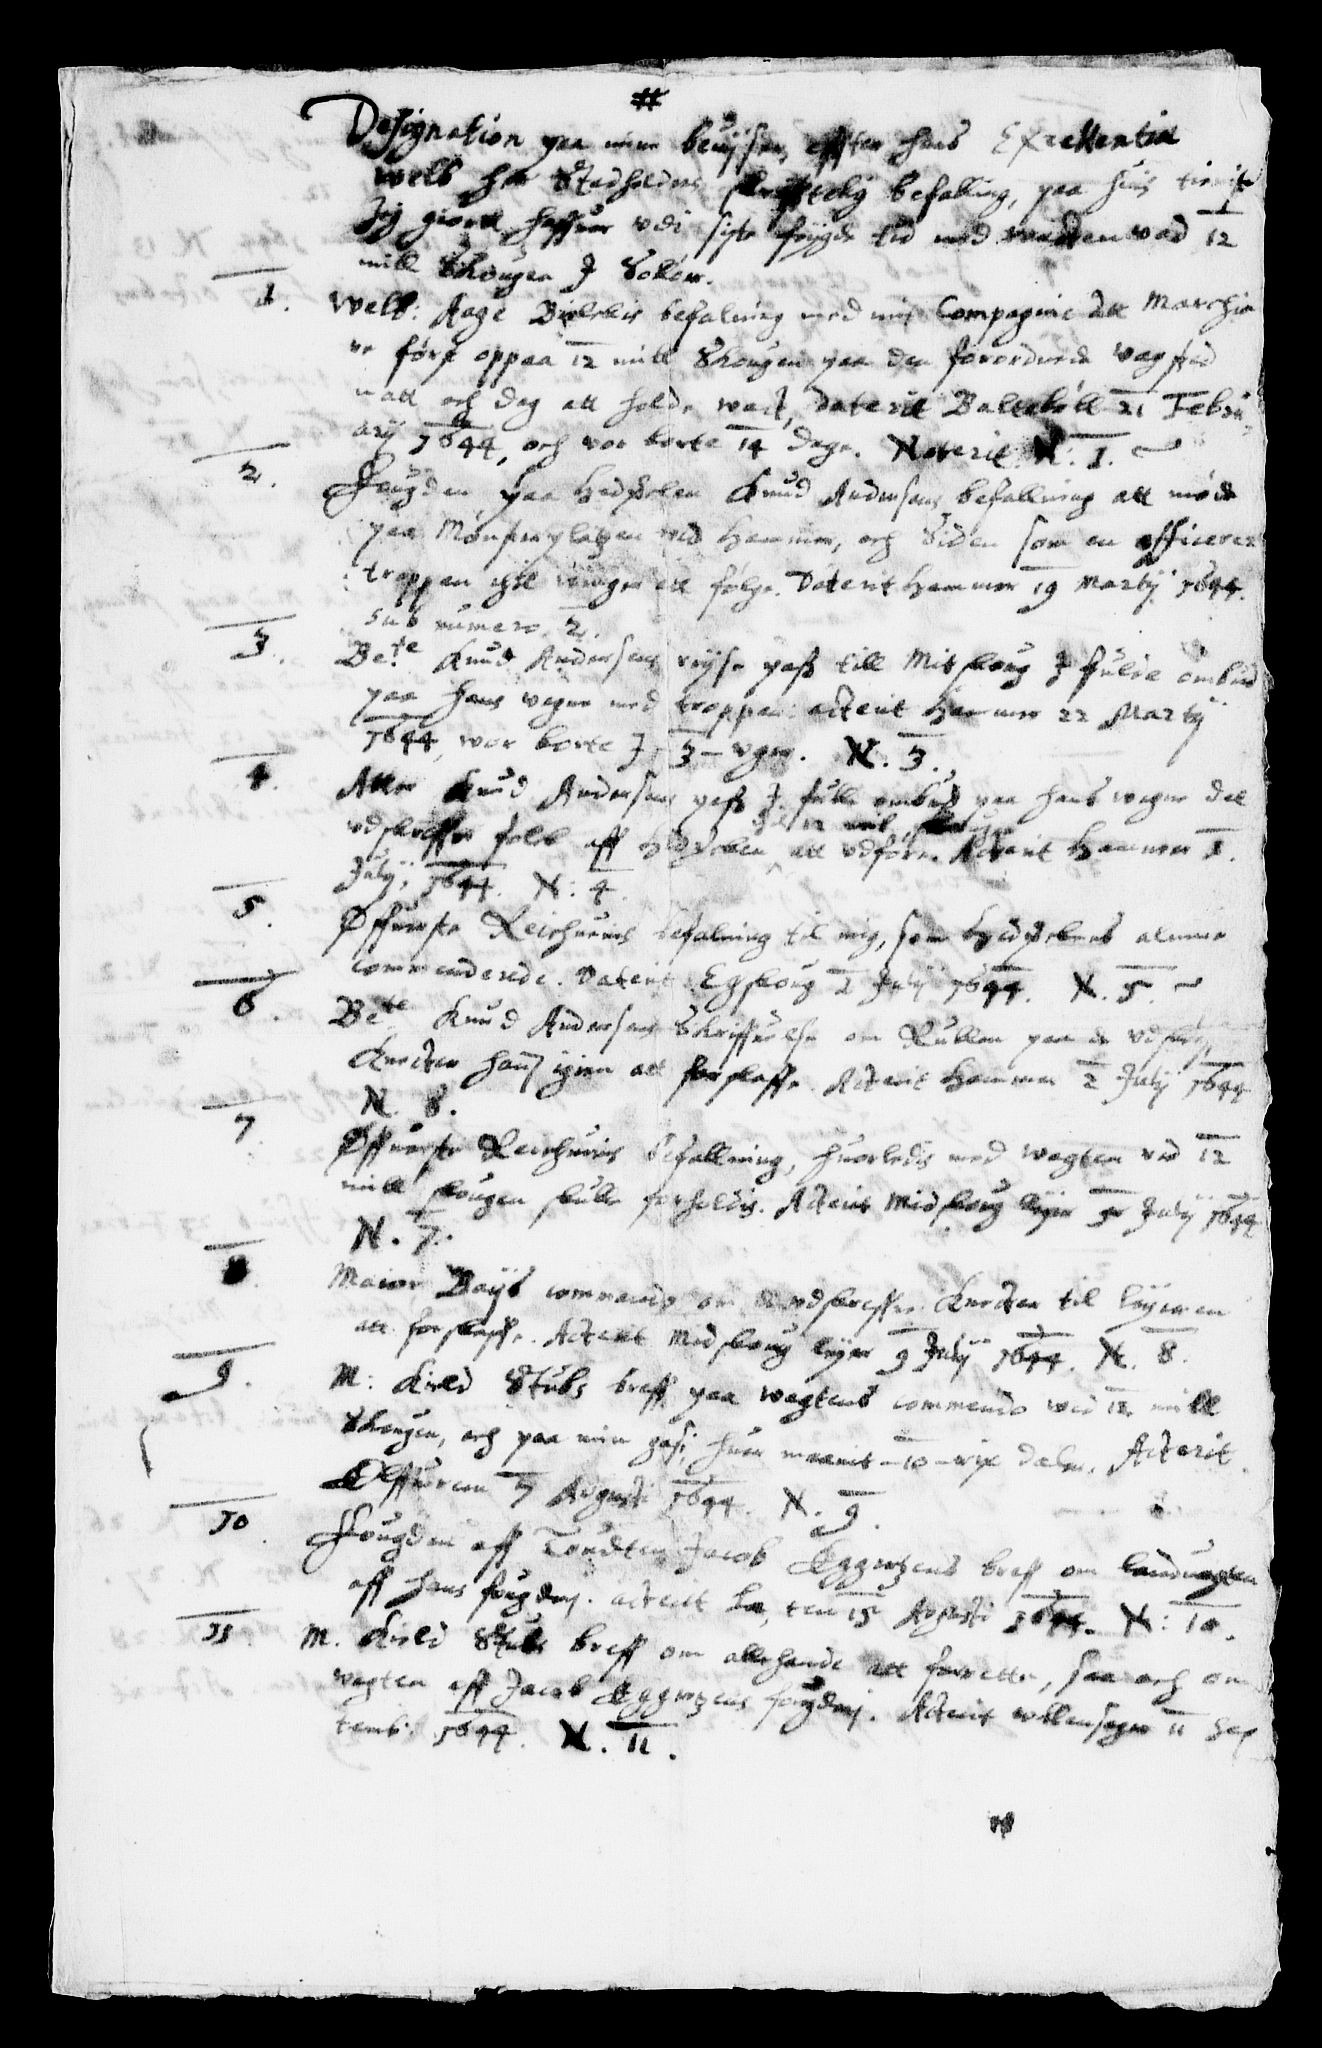 Designation paa mine beuiser, effter hans Excellentia
Welb her Stadholders skrifftelig befalling, paa huis tieniste
Jeg giortt haffuer vdi siste feigde tid med wacten ved 12
mill Skougen J Soløer.
1. Welb: Aage Bielckis befalning med mit Compagnie att Marchie
re først oppaa 12 mill Skougen paa den forordnede wagsted
natt och dag att holde wact, daterit Baltebøll 21 Febru
arij 1644, och var borte 14 dage. Noterit N: 1.
2. Fougden paa Hedemarken Knud Andersens befallning att møde
paa Mønsterplatzen ved Hammer, och siden som en officerer
troppen att følge. Daterit Hammer 19 Martij 1644.
sub numero 2.
3. Bete Knud Andersens reyse pass till Mitskoug J fulde ombud
paa hans wegne med troppen. acterit Hammer 22 Martij
1644, war borte J 3 - vger. N. 3.
4. Atter Knud Andersens pass J fulde ombud paa hans wegne det
vdskreffne folck aff Hedemarken til 12 mil skougen att vdføre. Acterit Hammer 1.
Julij, 1644. N: 4.
5. Øffuerste Reichweins befalning til mig, som Hedemarkens almue
commenderede. Daterit Egskoug 2 Julij 1644. N. 5.
6. Bete Knud Andersens Skriffuelse om Rullen paa de vdskreffne
Knecter hannem igien att forskaffe. Acterit Hammer 2 Julij 1644
N. 6.
7. Øffuerste Reichweins befallning, huorledis med wagten ved 12
mill skougen skulle forholdis. Acterit Midskoug leyer 5 Julij 1644
N. 7.
8. Maior Bays commando om vdskreffne Knecter til leyeren
att forskaffe. Acterit Midskoug leyer 9 Julij 1644. N. 8.
9. M: Kield Stubs breff paa wagtens commando ved 12 mill
Skougen, och paa min gasi, huer maanit - 10 - rix daler. Acterit
Offueren 7 Augusti 1644. N. 9.
10. Fougden aff Toudten Jacob Eggertzens breff om landuagten
aff hans fougderj. acterit ten 15 Augusti 1644. N: 10.
11. M. Kield Stubs breff om allehande att forrette, saa och om
wagten aff Jacob Eggertzens fougderj. Acterit wllensager 11 Sep
temb: 1644. N. 11.